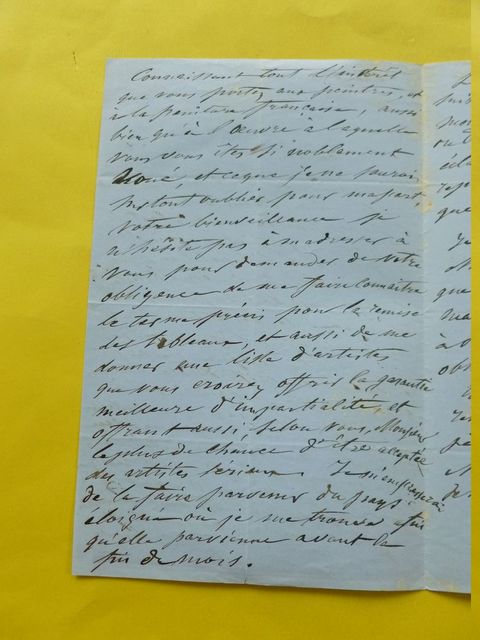 Connaissant tout l'intérêt
que vous portez aux peintres et
à la peinture française, aussi
bien qu'à l'œuvre à laquelle
vous vous êtes si noblement
voué, et ce que je ne saurai
surtout oublier pour ma part
votre bienveillance je
n'hésite pas à m'adresser à
vous pour demander de votre
obligence de me faire connaitre
le tems précis pour la remise
des tableaux, et aussi de me
donner une liste d'artistes
que vous croirez offrir la garantie
meilleure d'impartialité, et
offrant aussi, selon vous, Monsieur,
le plus de chance d'être acceptée
des artistes serieux. Je m'empresserai
de la faire parvenir du pays
éloigné où je me trouve afin
qu'elle parvienne avant la
fin de mois.